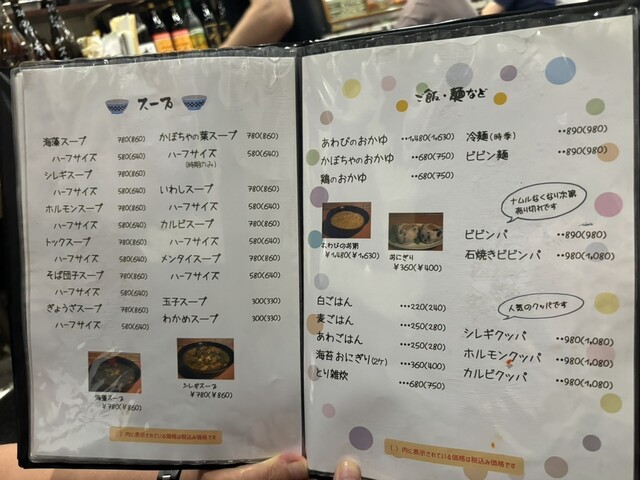 スープ
海藻スープ 780(860)
ハーフサイズ 580(640)
シレギスープ 780(860)
ハーフサイズ 580(640)
ホルモンスープ 780(860)
ハーフサイズ 580(640)
トックスープ 780(860)
ハーフサイズ 580(640)
そば団子スープ 780(860)
ハーフサイズ 580(640)
ぎょうざスープ 780(860)
ハーフサイズ 580(640)
かぼちゃの葉スープ 780(860)
ハーフサイズ 580(640)
(時期のみ)
いわしスープ 780(860)
ハーフサイズ 580(640)
カルビスープ 780(860)
ハーフサイズ 580(640)
メンタイスープ 780(860)
ハーフサイズ 580(640)
玉子スープ 300(330)
わかめスープ 300(330)
海藻スープ
¥780(¥860)
シレギスープ
¥780(¥860)
( )内に表示されている価格は税込み価格です
ご飯・麺など
あわびのおかゆ ・・1,480(1,630)
かぼちゃのおかゆ ・・680(750)
鶏のおかゆ ・・680(750)
冷麺(時季) ・・890(980)
ビビン麺 ・・890(980)
あわびのお粥
¥1,480(¥1,630)
おにぎり
¥360(¥400)
ナムルなくなり次第
売り切れです
ビビンパ ・・890(980)
石焼きビビンパ ・・980(1,080)
白ごはん ・・・220(240)
麦ごはん ・・・250(280)
あわごはん ・・・250(280)
海苔おにぎり(2ケ) ・・360(400)
とり雑炊 ・・・680(750)
人気のクッパです
シレギクッパ ・・980(1,080)
ホルモンクッパ ・・980(1,080)
カルビクッパ ・・980(1,080)
( )内に表示されている価格は税込み価格です